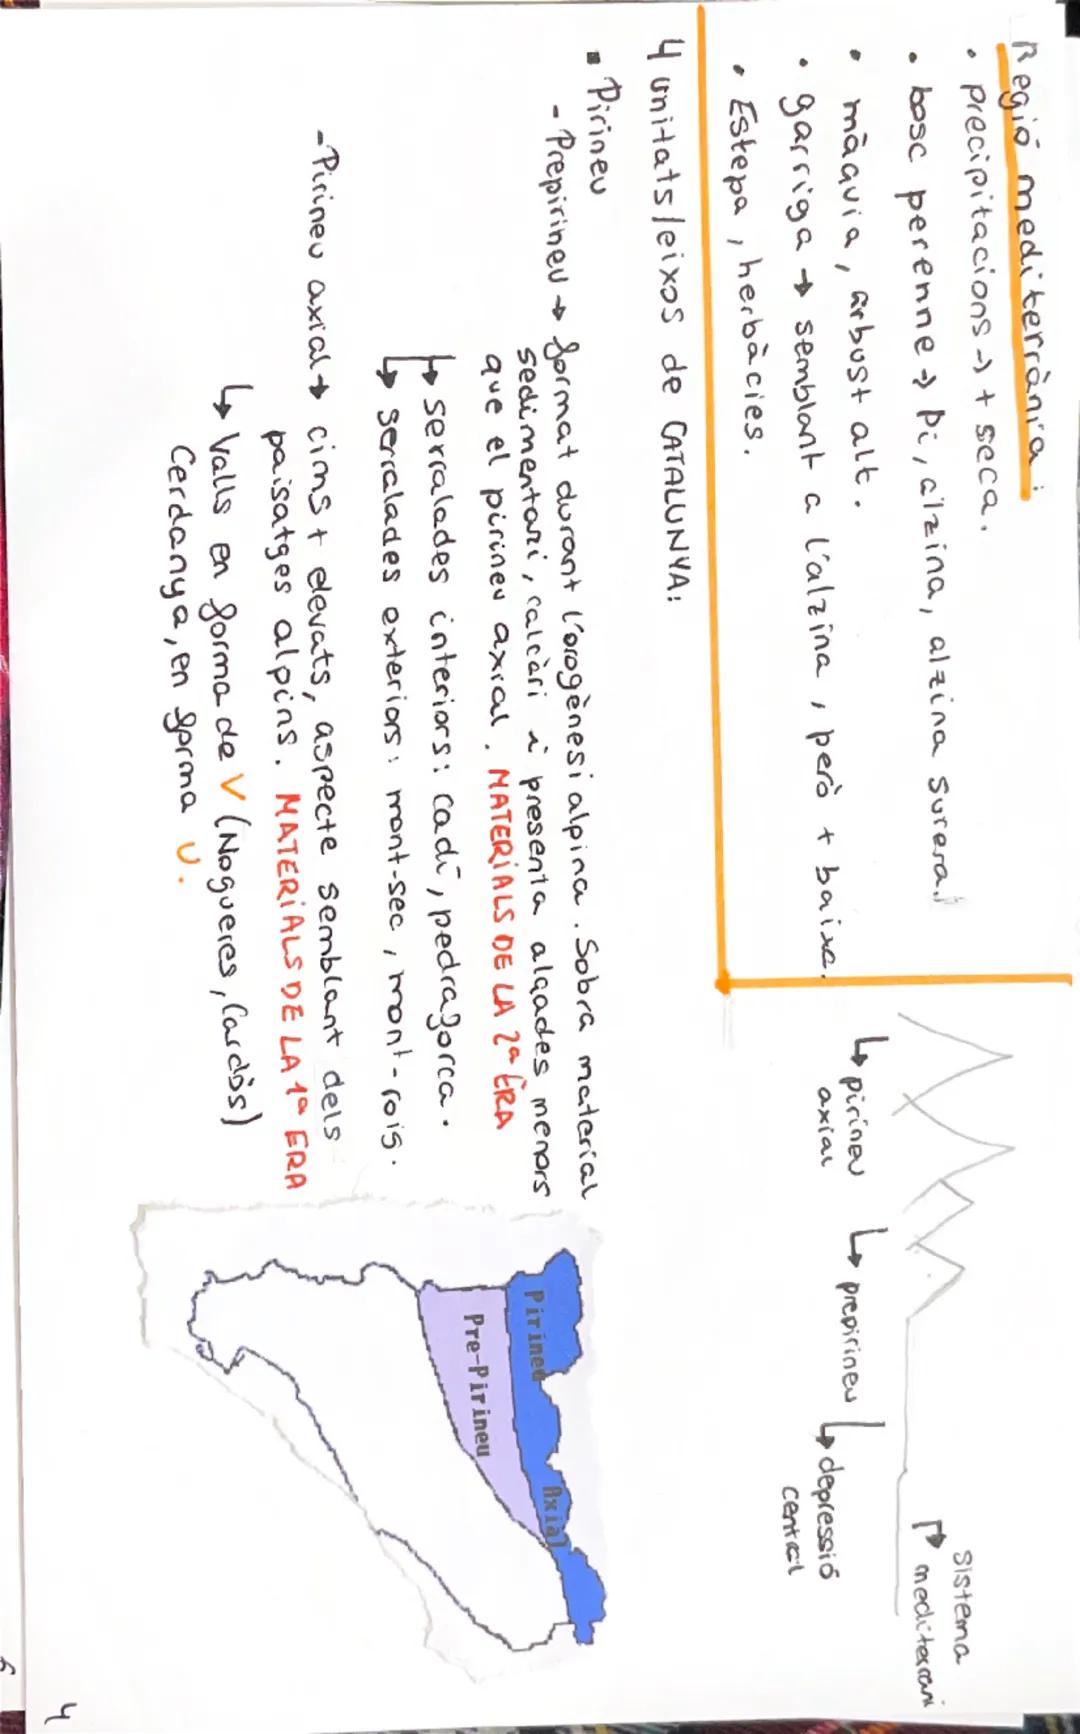 Regió mediterrània:
• precipitacions → + seca.
• bosc perenne → Pi, alzina, alzina surera.
• màquia, arbust alt.
• garriga → semblant a l'alzina, però + baixa.
• Estepa, herbàcies.
↳ pirineu
axial
↳ prepirineu
↳ depressió
central
sistema
↱ mediterrani
4 unitats/eixos de CATALUNYA:
▪ Pirineu
- Prepirineu → format durant l'orogènesi alpina. Sobra material
sedimentari, calcàri i presenta alçades menors
que el pirineu axial. MATERIALS DE LA 2ª ERA
↳ serralades interiors: cadí, pedragorca.
↳ serralades exteriors: mont-sec, mont-rois.
- Pirineu axial → cims + elevats, aspecte semblant dels
paisatges alpins. MATERIALS DE LA 1ª ERA
↳ Valls en forma de V (Nogueres, Cardòs)
Cerdanya, en forma U.
Pirineu Axial
Pre-Pirineu
4